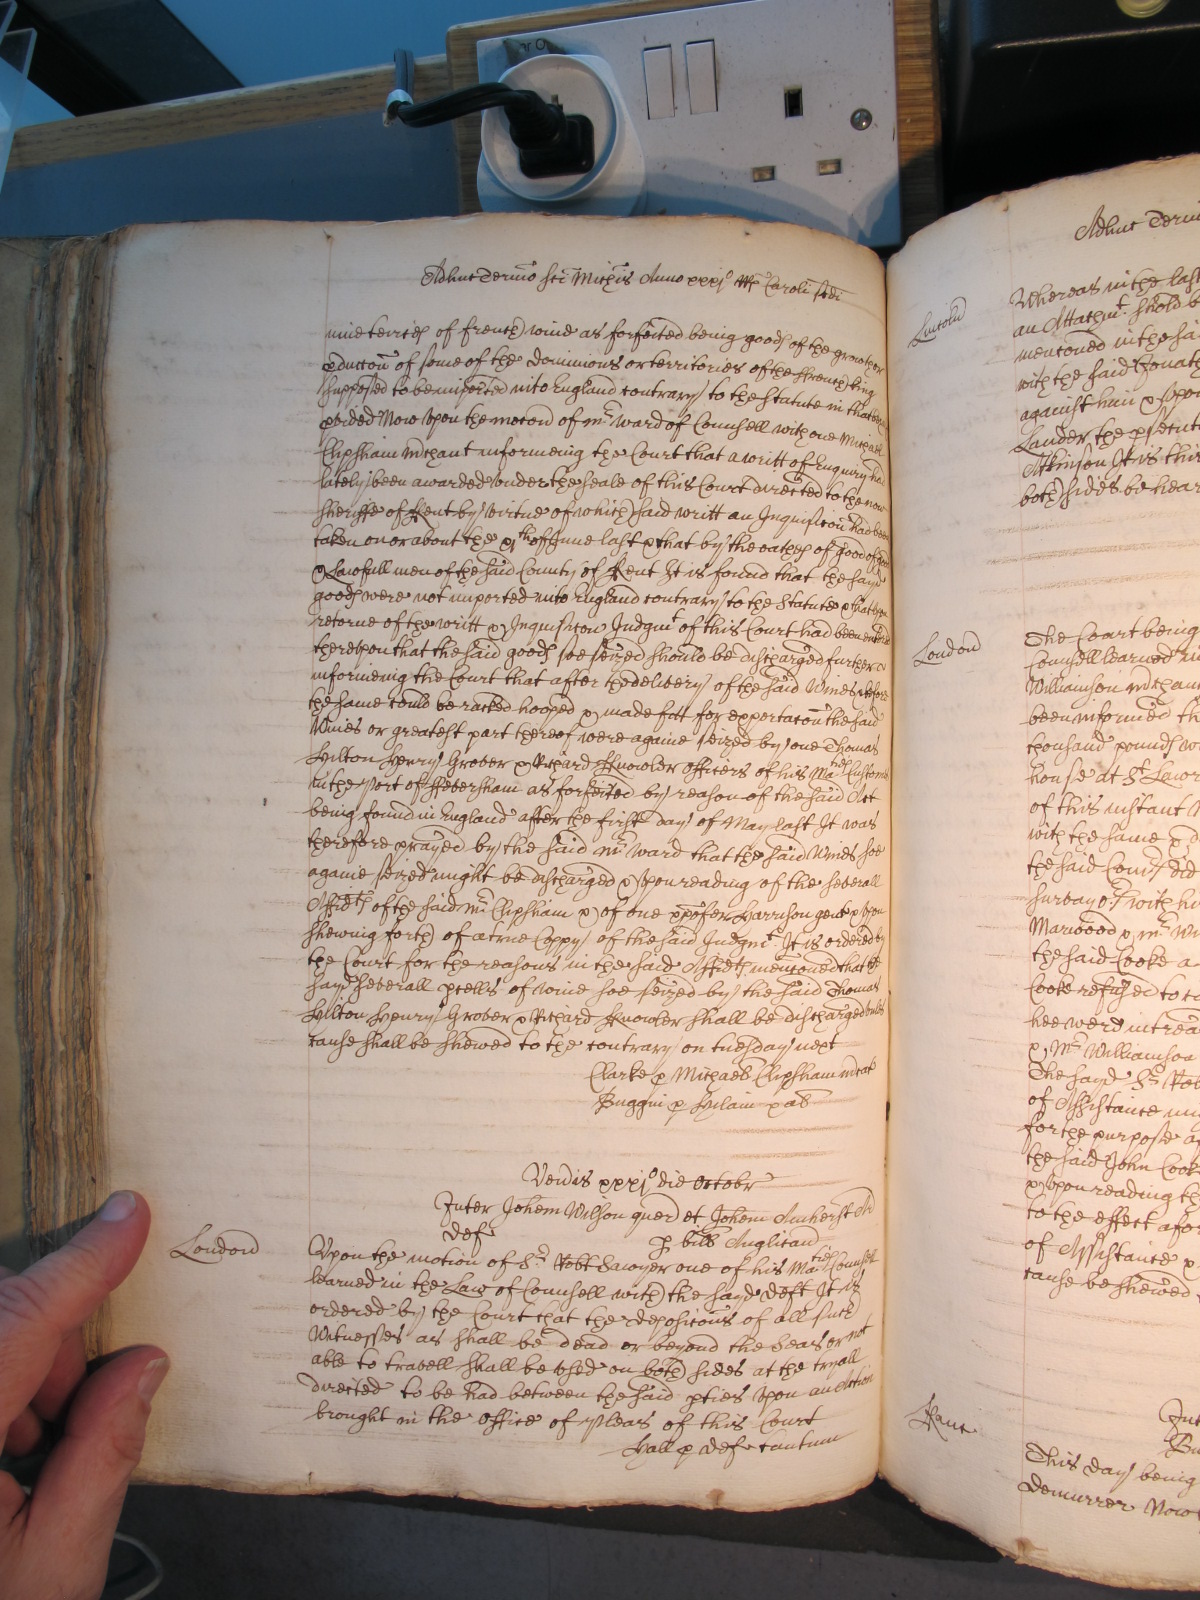 Adhuc Termio Sci Michis Anno xxxjo Rs Caroli scdi
nine terces of french wine as forfeited being goods of the growth or
pduccon of some of the Dominions or territories of the ffrench king
supposed to be imported into England contrary to the Statute in that case
pvided Now Upon the motion of Mr Ward of Counsell with one Michael
Clipsham Mchant informeing the Court that a writt of Enquiry had
lately been awarded under the seale of this Court directed to the now
Sheriffe of Kent by virtue of which said writt an Inquisicon had been
taken on or about the xjth of June last & that by the oathes of good
& Lawfull men of the said County of Kent It is found that the sayd
goods were not imported into England contrary to the Statute & that upon
retorne of the writt & Inquisicon Judgmt of this Court had been entred
thereupon that the said goods soe seized should be discharged further
informeing the Court that after the delivery of the said Wines & before
the same could be racked hooped & made fitt for exportacon the said
Wines or greatest part thereof were againe seized by one Thomas
Hilton Henry Grover & Richard Knowler officers of his Maties Customs
in the port of ffeversham as forfeited by reason of the said Act
being found in England after the first day of May last It was
therefore prayed by the said Mr Ward that the said Wines soe
againe seized might be discharged & Upon reading of the severall
Affidts of the said Mr Clipsham & of one Xpofer Harrison gent & Upon
shewing forth of a true Coppy of the said Judgmt It is ordered by
the Court for the reasons in the said Affidts mencioned that the
sayd severall pcells of wine soe seized by the said Thomas
Hilton Henry Grover & Richard Knowler shall be discharged unles
cause shall be shewed to the contrary on tuesday next
Clarke p Michael Clipsham mcat
Buggin p
Vendis xxxjo die Octobr
Inter Johem Wilson quer et Johem Amherst Ar
Def
p bill Anglican
London
Upon the motion of Sr Robt Sawyer one of his Maties Counsell
learned in the Law of Counsell with the sayd Deft It is
ordered by the Court that the deposicons of all such
Witnesses as shall be dead or beyond the Seas or not
able to travell shall be used on both sides at the tryall
directed to be had between the said pties Upon an Action
brought in the office of Pleas of this Court
Hall p def tantum
Adhuc Termi
Lincoln
Whereas in the last
an Attachmt should b
mencioned in the sai
with the said Jonath
against him & Upon
Lander the psecut
Atkinson It is this
both sides be hear
London
The Court being
Counsell learned in
Williamson mchant
been informed th
thousand pounds w
house at St Lawr
of this instant N
with the same &
the said Court did
Marwood & Mr Wi
the said Cooke a
Cooke refused to
hee were intrea
& Mr Williamson
The sayd Sr Rob
of Assistance
for the purpose a
the said John Cook
& Upon reading th
to the effect afor
of Assistance &
cause be shewed
Kanc
Int
Bu
This day being
Demurrer Now